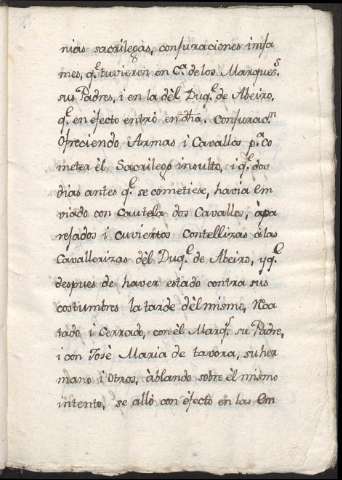 nias sacrilegas, confuraciones infa
mes, q.e tuvieron en C.a de los Marques.s
sus Padres, i en la dèl Duq.e de Abeiro,
q.e en èfecto entrò en dha. Confurac.n
Ofreciendo Armas i Cavallos p.a Co
meter èl Sacrilego insulto, i q.e dos
dias antes q.e se cometiese, havia em
viado con Cautela dos Cavallos, àpa
rejados i cuviertos Contelliras àlas
Cavallerizas dèl Duq.e de Abeiro, y q.e
despues de haver estado contra sus
costumbres la tarde dèl mismo,
tado i Cerrado, con èl Marq.s su Padre,
i con Josè Maria de tavora, su her
mano i Otros, àblando sobre èl mismo
intento, se allò con èfecto en las Em